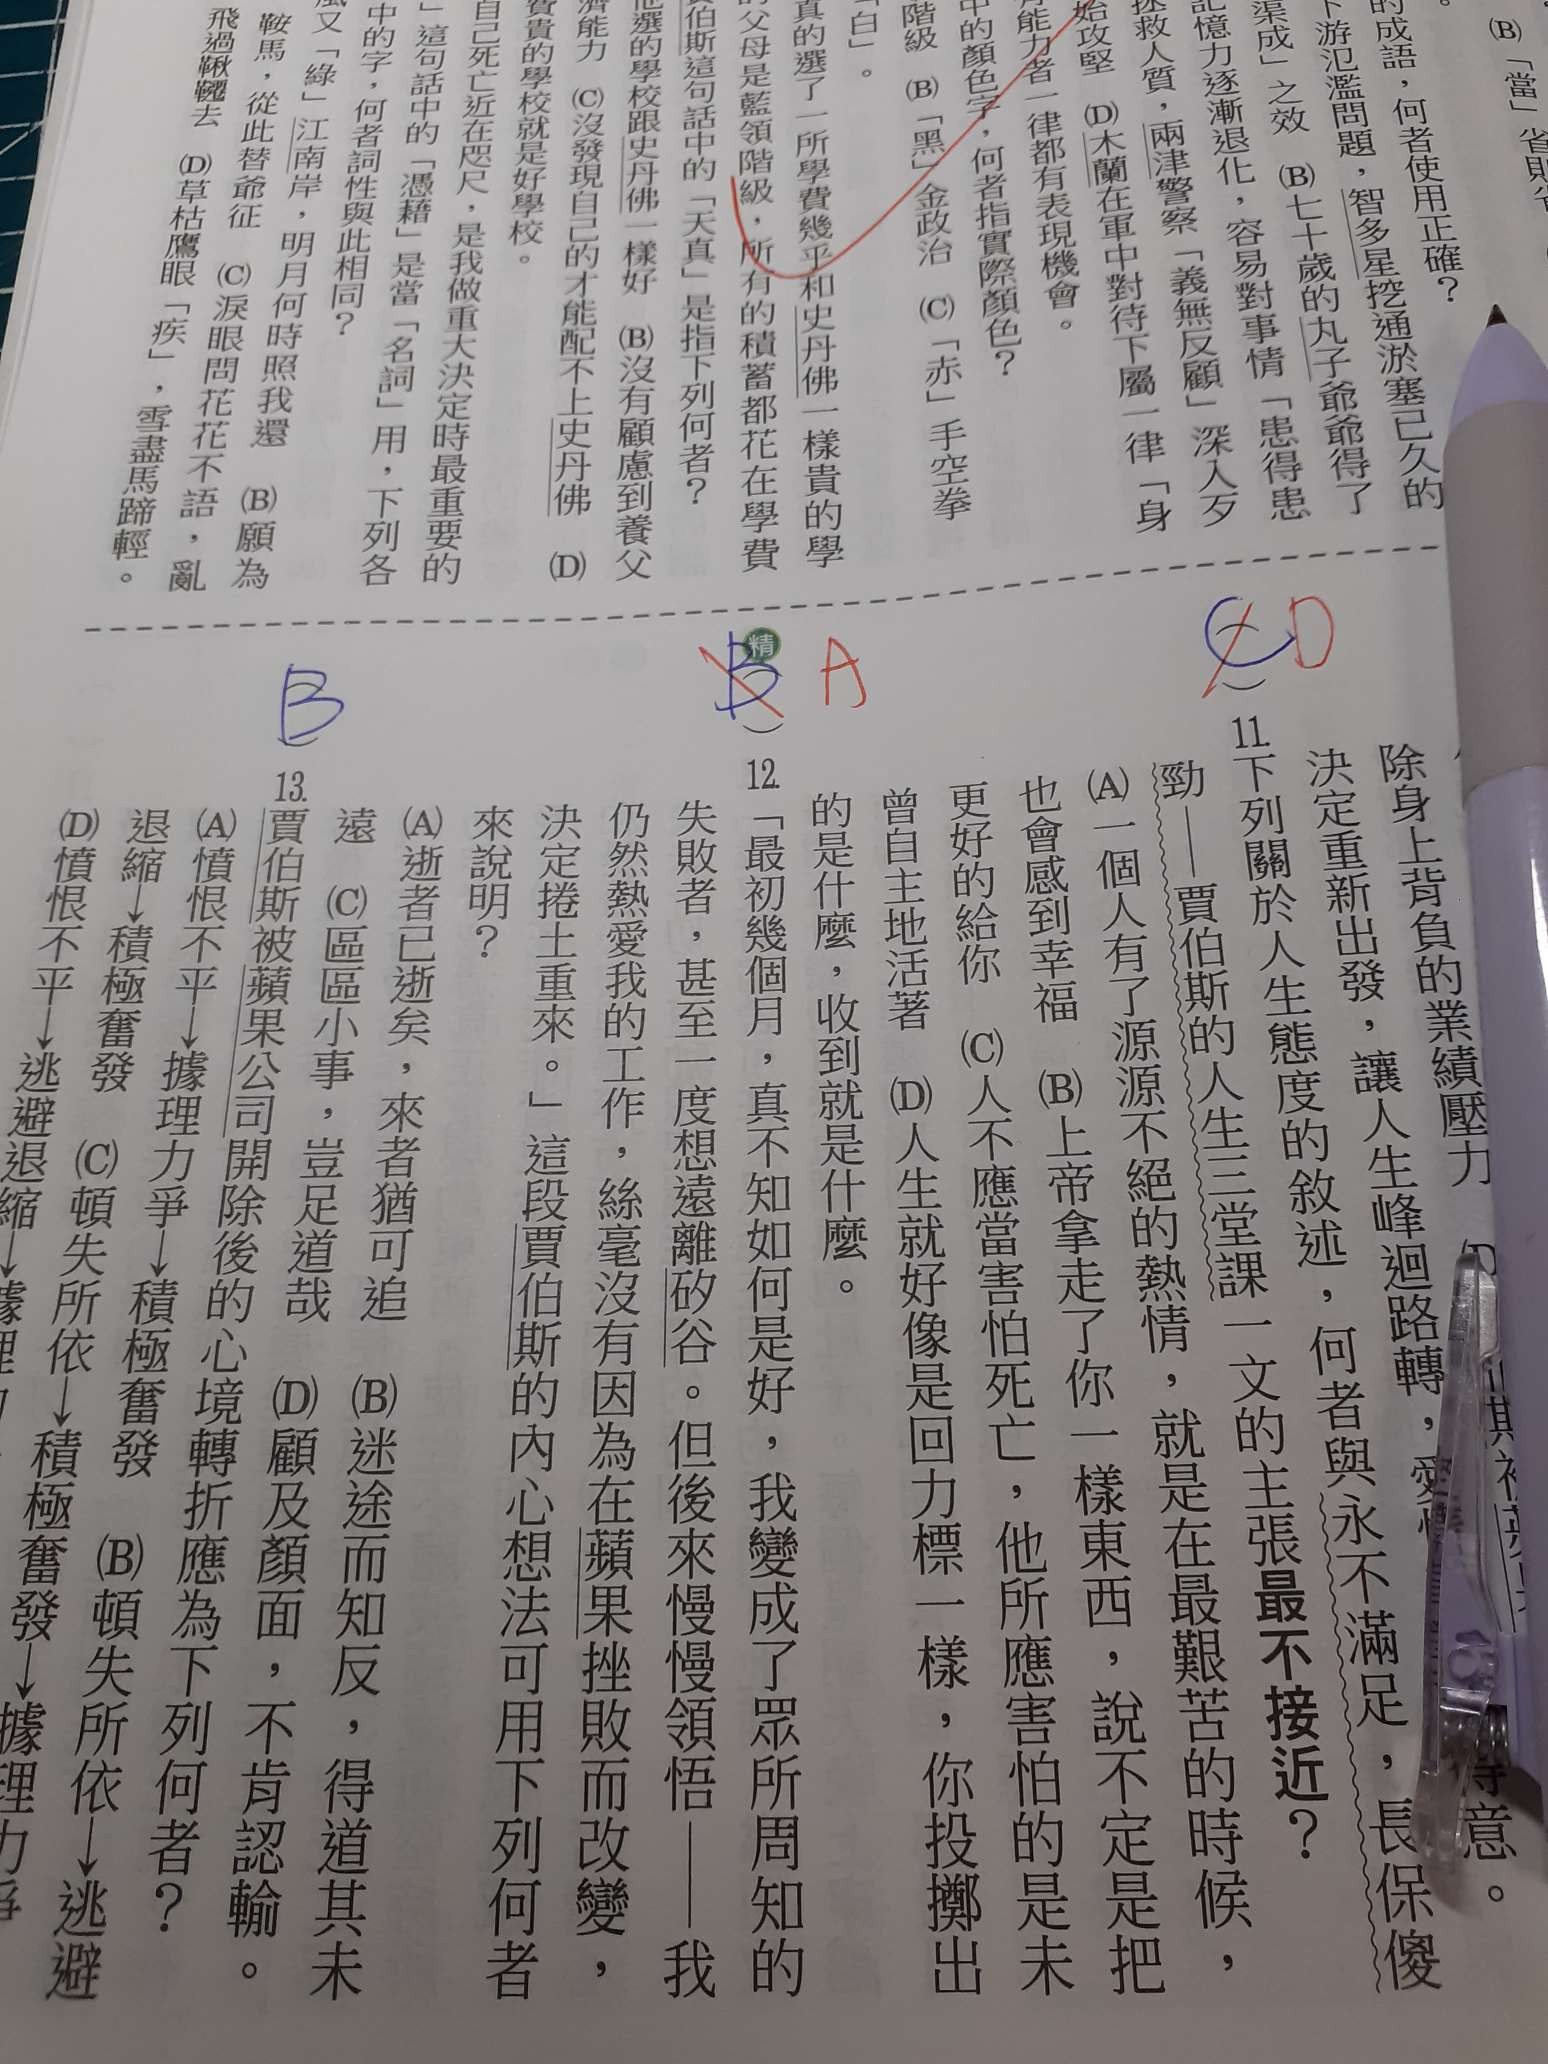 (B)「當」
的成語，何者使用正確？
下游氾濫問題，智多星挖通淤塞已久的
渠成」之效　(B)七十歲的丸子爺爺得了
記憶力逐漸退化，容易對事情「患得患
拯救人質，兩津警察「義無反顧」深入歹
始攻堅　(D)木蘭在軍中對待下屬一律「身
有能力者一律都有表現機會。
中的顏色字，何者指實際顏色？
階級　(B)「黑」金政治　(C)「赤」手空拳
「白」。
真的選了一所學費幾乎和史丹佛一樣貴的學
的父母是藍領階級，所有的積蓄都花在學費
賈伯斯這句話中的「天真」是指下列何者？
他選的學校跟史丹佛一樣好　(B)沒有顧慮到養父
濟能力　(C)沒發現自己的才能配不上史丹佛　(D)
費貴的學校就是好學校。
自己死亡近在咫尺，是我做重大決定時最重要的
」這句話中的「憑藉」是當「名詞」用，下列各
中的字，何者詞性與此相同？
風又「綠」江南岸，明月何時照我還　(B)願為
鞍馬，從此替爺征　(C)淚眼問花花不語，亂
飛過鞦韆去　(D)草枯鷹眼「疾」，雪盡馬蹄輕。
得意。
除身上背負的業績壓力
決定重新出發，讓人生峰迴路轉，愛
C D
11.下列關於人生態度的敘述，何者與永不滿足，長保傻
勁──賈伯斯的人生三堂課一文的主張最不接近？
(A)一個人有了源源不絕的熱情，就是在最艱苦的時候，
也會感到幸福　(B)上帝拿走了你一樣東西，說不定是把
更好的給你　(C)人不應當害怕死亡，他所應害怕的是未
曾自主地活著　(D)人生就好像是回力標一樣，你投擲出
的是什麼，收到就是什麼。
精
B A
12.「最初幾個月，真不知如何是好，我變成了眾所周知的
失敗者，甚至一度想遠離矽谷。但後來慢慢領悟──我
仍然熱愛我的工作，絲毫沒有因為在蘋果挫敗而改變，
決定捲土重來。」這段賈伯斯的內心想法可用下列何者
來說明？
(A)逝者已逝矣，來者猶可追　(B)迷途而知反，得道其未
遠　(C)區區小事，豈足道哉　(D)顧及顏面，不肯認輸。
B
13.賈伯斯被蘋果公司開除後的心境轉折應為下列何者？
(A)憤恨不平→據理力爭→積極奮發　(B)頓失所依→逃避
退縮→積極奮發　(C)頓失所依→積極奮發→據理力爭
(D)憤恨不平→逃避退縮→